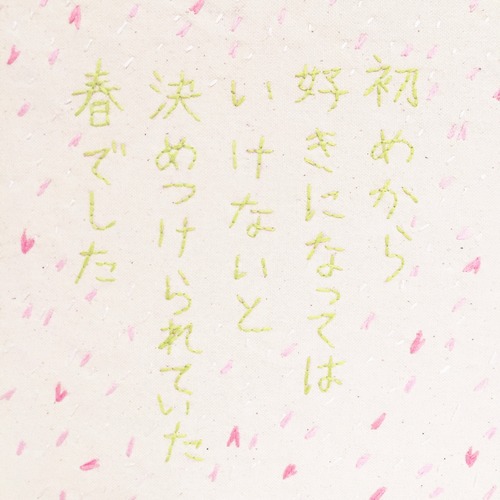 初めから
好きになっては
いけないと
決めつけられていた
春でした